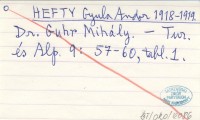 HEFTY Gyula Andor 1918-1919.
Dr. Guhr Mihály. — Tur.
és Alp. 9: 57-60, tabl. 1.